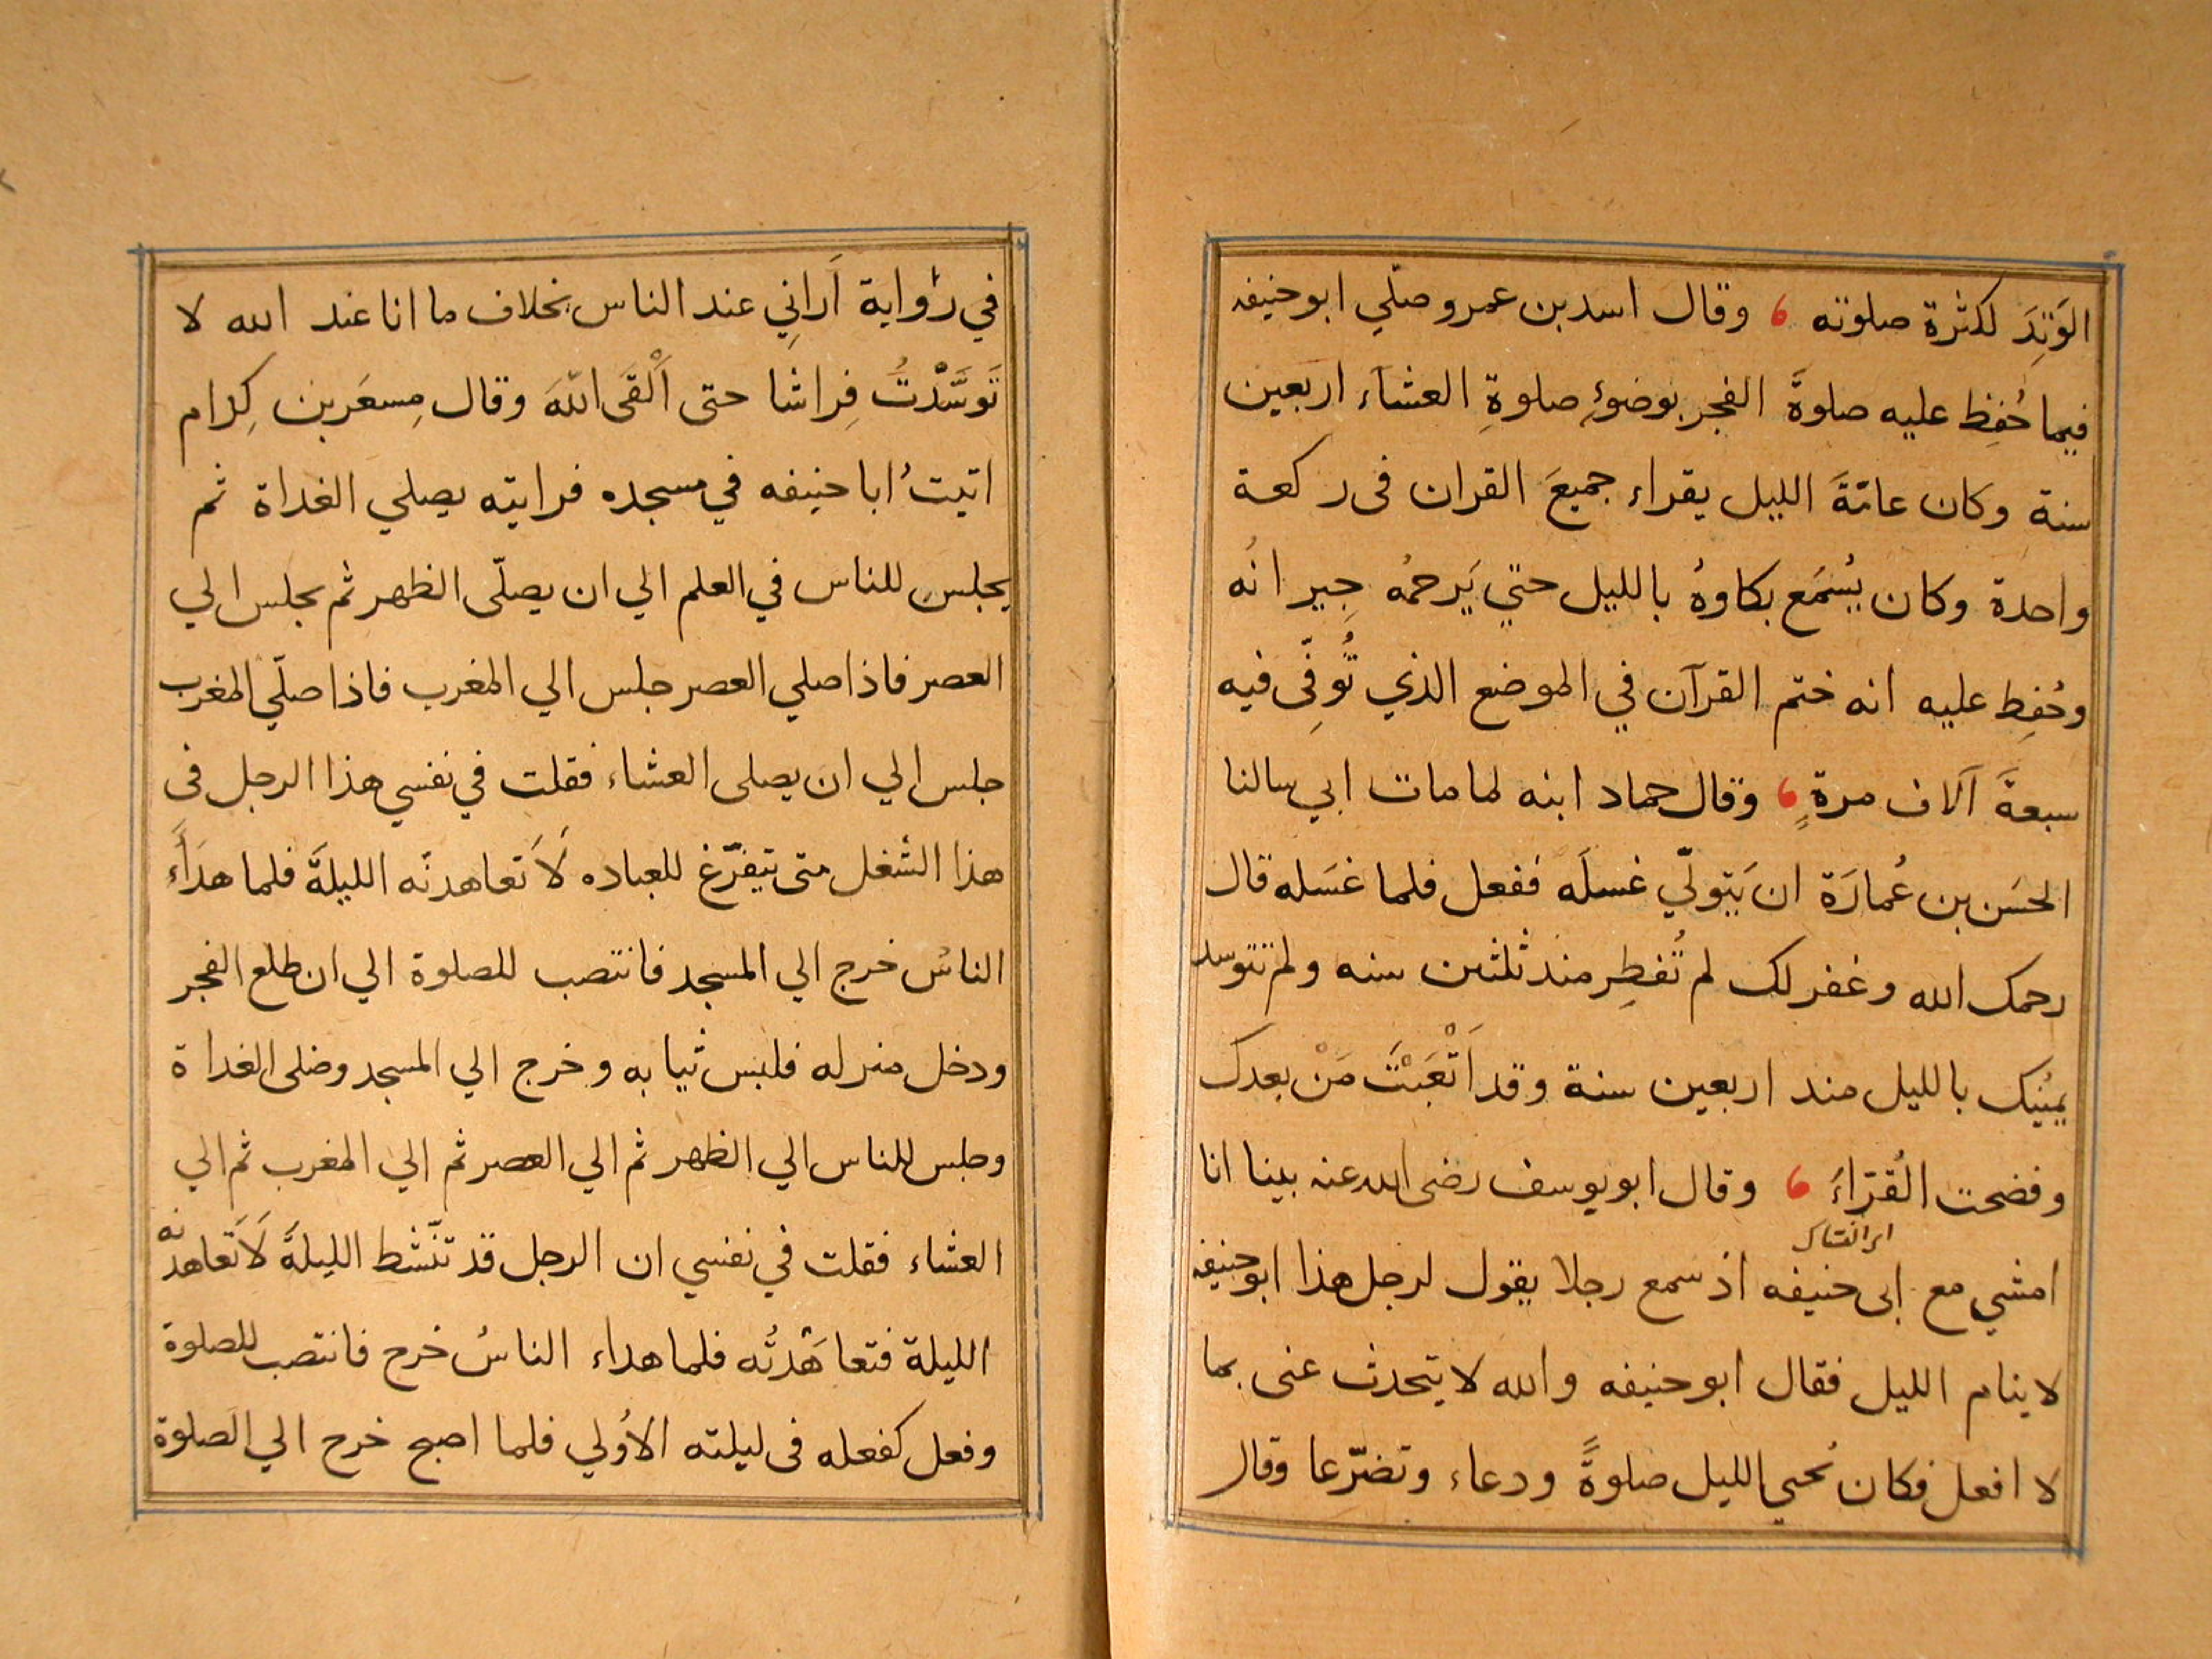 الوَتِدَ لكثرة صلوته ، وقال اسد بن عمرو صلّي ابو حنيفه
فيما حُفِظ عليه صلوةَ الفجر بوضوءِ صلوةِ العشاء اربعين
سنة وكان عامّةَ الليل يقراء جميعَ القران فى ركعة
واحدة وكان يُسْمَع بكاوهُ بالليل حتي يَرحمُه جِيرانُه
وحُفِظ عليه انه ختم القرآن في الموضع الذي تُوفِّى فيه
سبعةَ آلاف مرةٍ ، وقال حماد ابنه لما مات ابي سالنا
الحسَن بن عُمارَة ان يَتولّي غسلَه ففعل فلما غسَله قال
رحمك الله وغفر لك لم تُفطِر منذ ثلثين سنه ولم تتوسد
يمينك بالليل منذ اربعين سنة وقد اَتْعَبْتَ مَنْ بعدك
وفضحت القُرّاءَ ، وقال ابو يوسف رضى الله عنه بينا انا
امشي مع ابى حنيفه اذ سمع رجلا يقول لرجل هذا ابو حنيفه
لا ينام الليل فقال ابو حنيفه والله لا يتحدث عنى بما
لا افعل فكان يُحيي الليل صلوةً ودعاء وتضرّعا وقال
في رواية اَرانِي عند الناس بخلاف ما انا عند الله لا
تَوسَّدْتُ فِراشا حتى اَلْقَى اللّهَ وقال مِسعَر بن كِدام
اتيتُ ابا حنيفه في مسجده فرايته يصلي الغداة ثم
يجلس للناس في العلم الي ان يصلّى الظهر ثم يجلس الي
العصر فاذا صلي العصر جلس الي المغرب فاذا صلّي المغرب
جلس الي ان يصلى العشاء فقلت في نفسي هذا الرجل فى
هذا الشغل متى يتفرّغ للعباده لَاَتعاهدنّه الليلةَ فلما هدَاَء
الناسُ خرج الي المسجد فانتصب للصلوة الي ان طلع الفجر
ودخل منزله فلبس ثيابه وخرج الي المسجد وصلى الغداة
وجلس للناس الي الظهر ثم الي العصر ثم الي المغرب ثم الي
العشاء فقلت في نفسي ان الرجل قد تنّشط الليلةَ لَاَتَعاهدنّه
الليلة فتعاهَدْتُه فلما هداء الناسُ خرج فانتصب للصلوة
وفعل كفعله فى ليلته الاُولي فلما اصبح خرج الي الصلوة